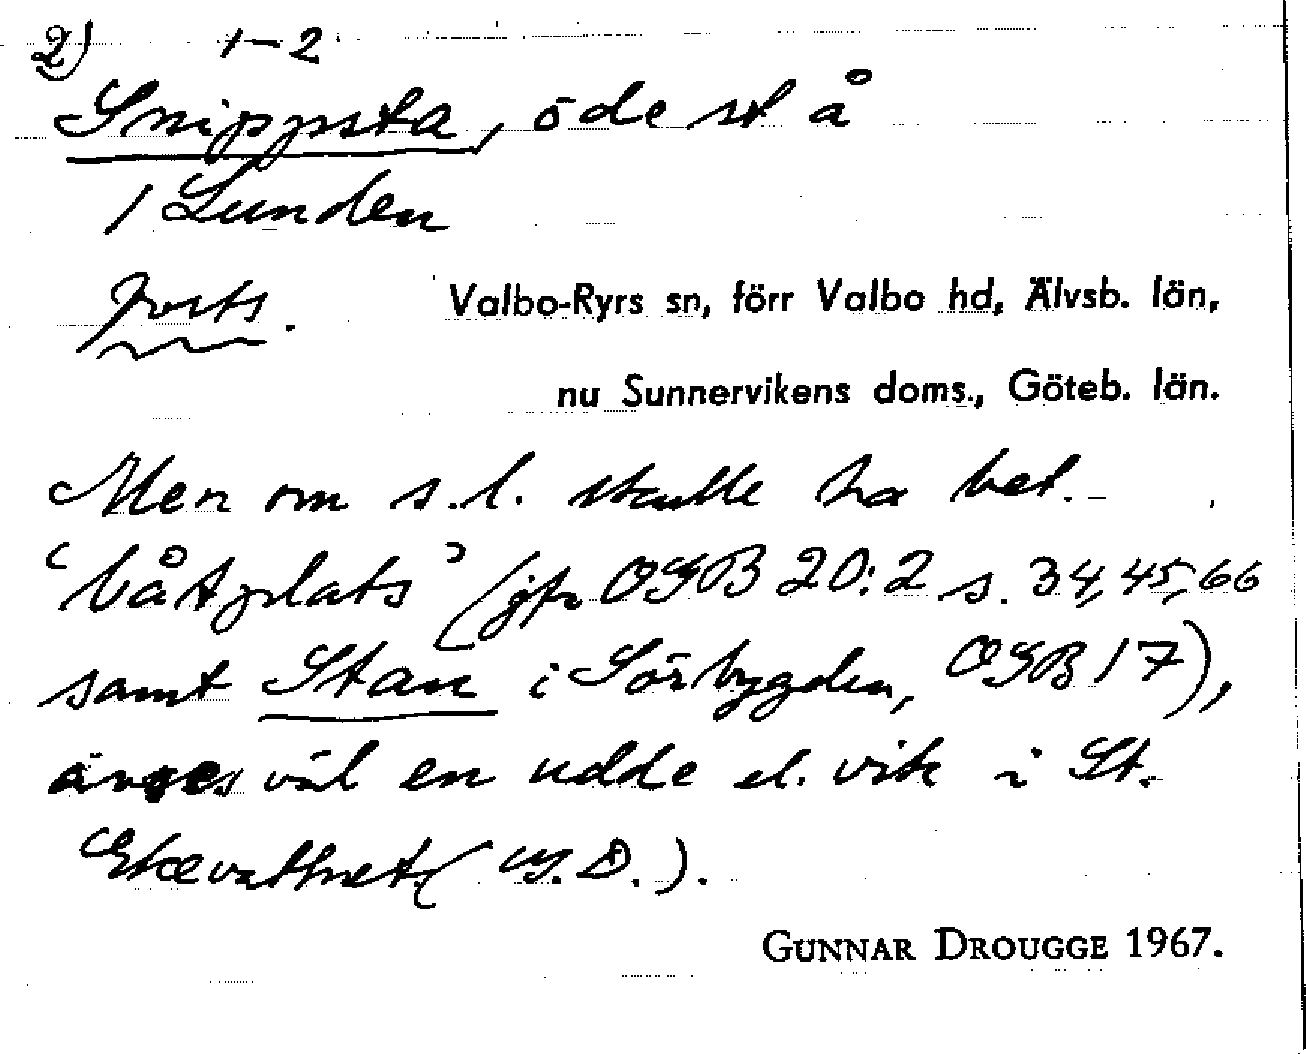 2) 1-2
Snippsta, öde st å
1 Lunden
forts.
Valbo-Ryrs sn, förr Valbo hd, Älvsb. län,
nu Sunnervikens doms., Göteb. län.
Men om s.l. skulle ha bet.
'båtplats' (jfr OGB 20:2 s. 34, 45, 66
samt Stan i Sörbygden, OGB 17),
avses väl en udde el. vik i St.
Ekevattnet (G.D.).
GUNNAR DROUGGE 1967.